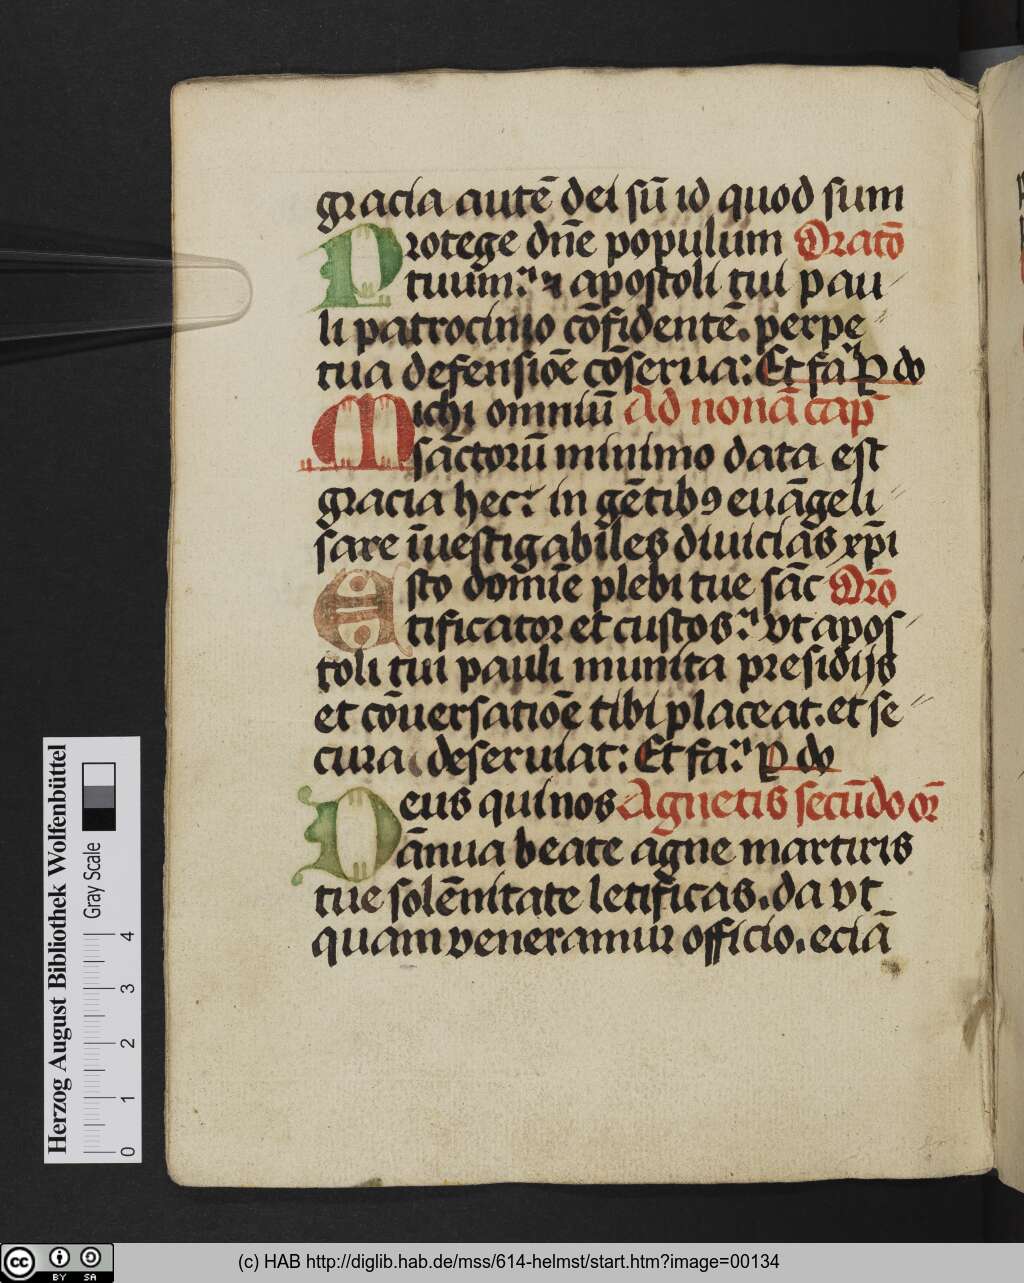 gracia autē dei sū id quod sum
Protege dn̄e populum Oratō
tuum: et apostoli tui pau
li patrocinio cōfidentē. perpe
tua defensiōe cōserua: Et fa P do
Michi omniū Ad nonā cap
sāctorū minimo data est
gracia hec: in gētibꝯ euāgeli
sare īuestigabiles diuiciās xp̄i
Esto domīe plebi tue sāc Orō
tificator et custos: vt apos
toli tui pauli munita presidijs
et cōuersatiōe tibi placeat. et se
cura deseruiat: Et fa: P do
Deus qui nos Agnetis secūdo or
ānua beate agne martiris
tue solēnitate letificas. da vt
quam veneramur officio. eciā
Herzog August Bibliothek Wolfenbüttel
Gray Scale
0 1 2 3 4
cc BY SA
(c) HAB http://diglib.hab.de/mss/614-helmst/start.htm?image=00134